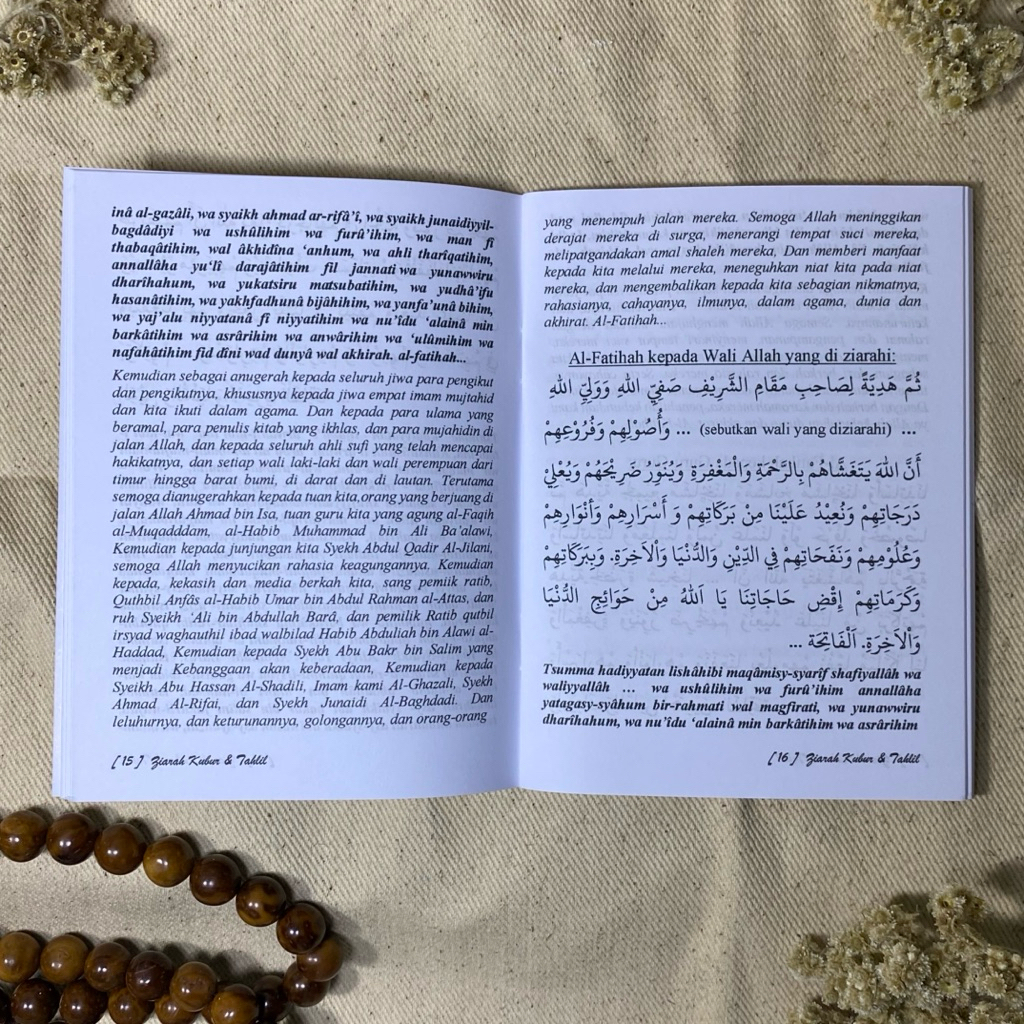 inâ al-gazâli, wa syaikh ahmad ar-rifâ'î, wa syaikh junaidiyyil-
bagdâdiyi wa ushûlihim wa furû'ihim, wa man fî
thabaqâtihim, wal âkhidîna 'anhum, wa ahli tharîqatihim,
annallâha yu'lî darajâtihim fil jannati wa yunawwiru
dharîhahum, wa yukatsiru matsubatihim, wa yudhâ'ifu
hasanâtihim, wa yakhfadhunâ bijâhihim, wa yanfa'unâ bihim,
wa yaj'alu niyyatanâ fî niyyatihim wa nu'îdu 'alainâ min
barkâtihim wa asrârihim wa anwârihim wa 'ulûmihim wa
nafahâtihim fid dîni wad dunyâ wal akhirah. al-fatihah...
Kemudian sebagai anugerah kepada seluruh jiwa para pengikut
dan pengikutnya, khususnya kepada jiwa empat imam mujtahid
dan kita ikuti dalam agama. Dan kepada para ulama yang
beramal, para penulis kitab yang ikhlas, dan para mujahidin di
jalan Allah, dan kepada seluruh ahli sufi yang telah mencapai
hakikatnya, dan setiap wali laki-laki dan wali perempuan dari
timur hingga barat bumi, di darat dan di lautan. Terutama
semoga dianugerahkan kepada tuan kita,orang yang berjuang di
jalan Allah Ahmad bin Isa, tuan guru kita yang agung al-Faqih
al-Muqadddam, al-Habib Muhammad bin Ali Ba'alawi,
Kemudian kepada junjungan kita Syekh Abdul Qadir Al-Jilani,
semoga Allah menyucikan rahasia keagungannya, Kemudian
kepada, kekasih dan media berkah kita, sang pemiik ratib,
Quthbil Anfâs al-Habib Umar bin Abdul Rahman al-Attas, dan
ruh Syeikh 'Ali bin Abdullah Barâ, dan pemilik Ratib qutbil
irsyad waghauthil ibad walbilad Habib Abduliah bin Alawi al-
Haddad, Kemudian kepada Syekh Abu Bakr bin Salim yang
menjadi Kebanggaan akan keberadaan, Kemudian kepada
Syeikh Abu Hassan Al-Shadili, Imam kami Al-Ghazali, Syekh
Ahmad Al-Rifai, dan Syekh Junaidi Al-Baghdadi. Dan
leluhurnya, dan keturunannya, golongannya, dan orang-orang
[ 15 ] Ziarah Kubur & Tahlil
yang menempuh jalan mereka. Semoga Allah meninggikan
derajat mereka di surga, menerangi tempat suci mereka,
melipatgandakan amal shaleh mereka, Dan memberi manfaat
kepada kita melalui mereka, meneguhkan niat kita pada niat
mereka, dan mengembalikan kepada kita sebagian nikmatnya,
rahasianya, cahayanya, ilmunya, dalam agama, dunia dan
akhirat. Al-Fatihah...
Al-Fatihah kepada Wali Allah yang di ziarahi:
ثُمَّ هَدِيَّةً لِصَاحِبِ مَقَامِ الشَّرِيْفِ صَفِيِّ اللهِ وَوَلِيِّ اللهِ
... (sebutkan wali yang diziarahi) ... وَأُصُوْلِهِمْ وَفُرُوْعِهِمْ
أَنَّ اللهَ يَتَغَشَّاهُمْ بِالرَّحْمَةِ وَالْمَغْفِرَةِ وَيُنَوِّرُ ضَرِيْحَهُمْ وَيُعْلِيْ
دَرَجَاتِهِمْ وَنُعِيْدُ عَلَيْنَا مِنْ بَرَكَاتِهِمْ وَ أَسْرَارِهِمْ وَأَنْوَارِهِمْ
وَعُلُوْمِهِمْ وَنَفَحَاتِهِمْ فِي الدِّيْنِ وَالدُّنْيَا وَاْلآخِرَةِ. وَبِبَرَكَاتِهِمْ
وَكَرَمَاتِهِمْ إِقْضِ حَاجَاتِنَا يَا اَللهُ مِنْ حَوَائِجِ الدُّنْيَا
وَاْلآخِرَةِ. اَلْفَاتِحَة ...
Tsumma hadiyyatan lishâhibi maqâmisy-syarîf shafiyallâh wa
waliyyallâh ... wa ushûlihim wa furû'ihim annallâha
yatagasy-syâhum bir-rahmati wal magfirati, wa yunawwiru
dharîhahum, wa nu'îdu 'alainâ min barkâtihim wa asrârihim
[ 16 ] Ziarah Kubur & Tahlil